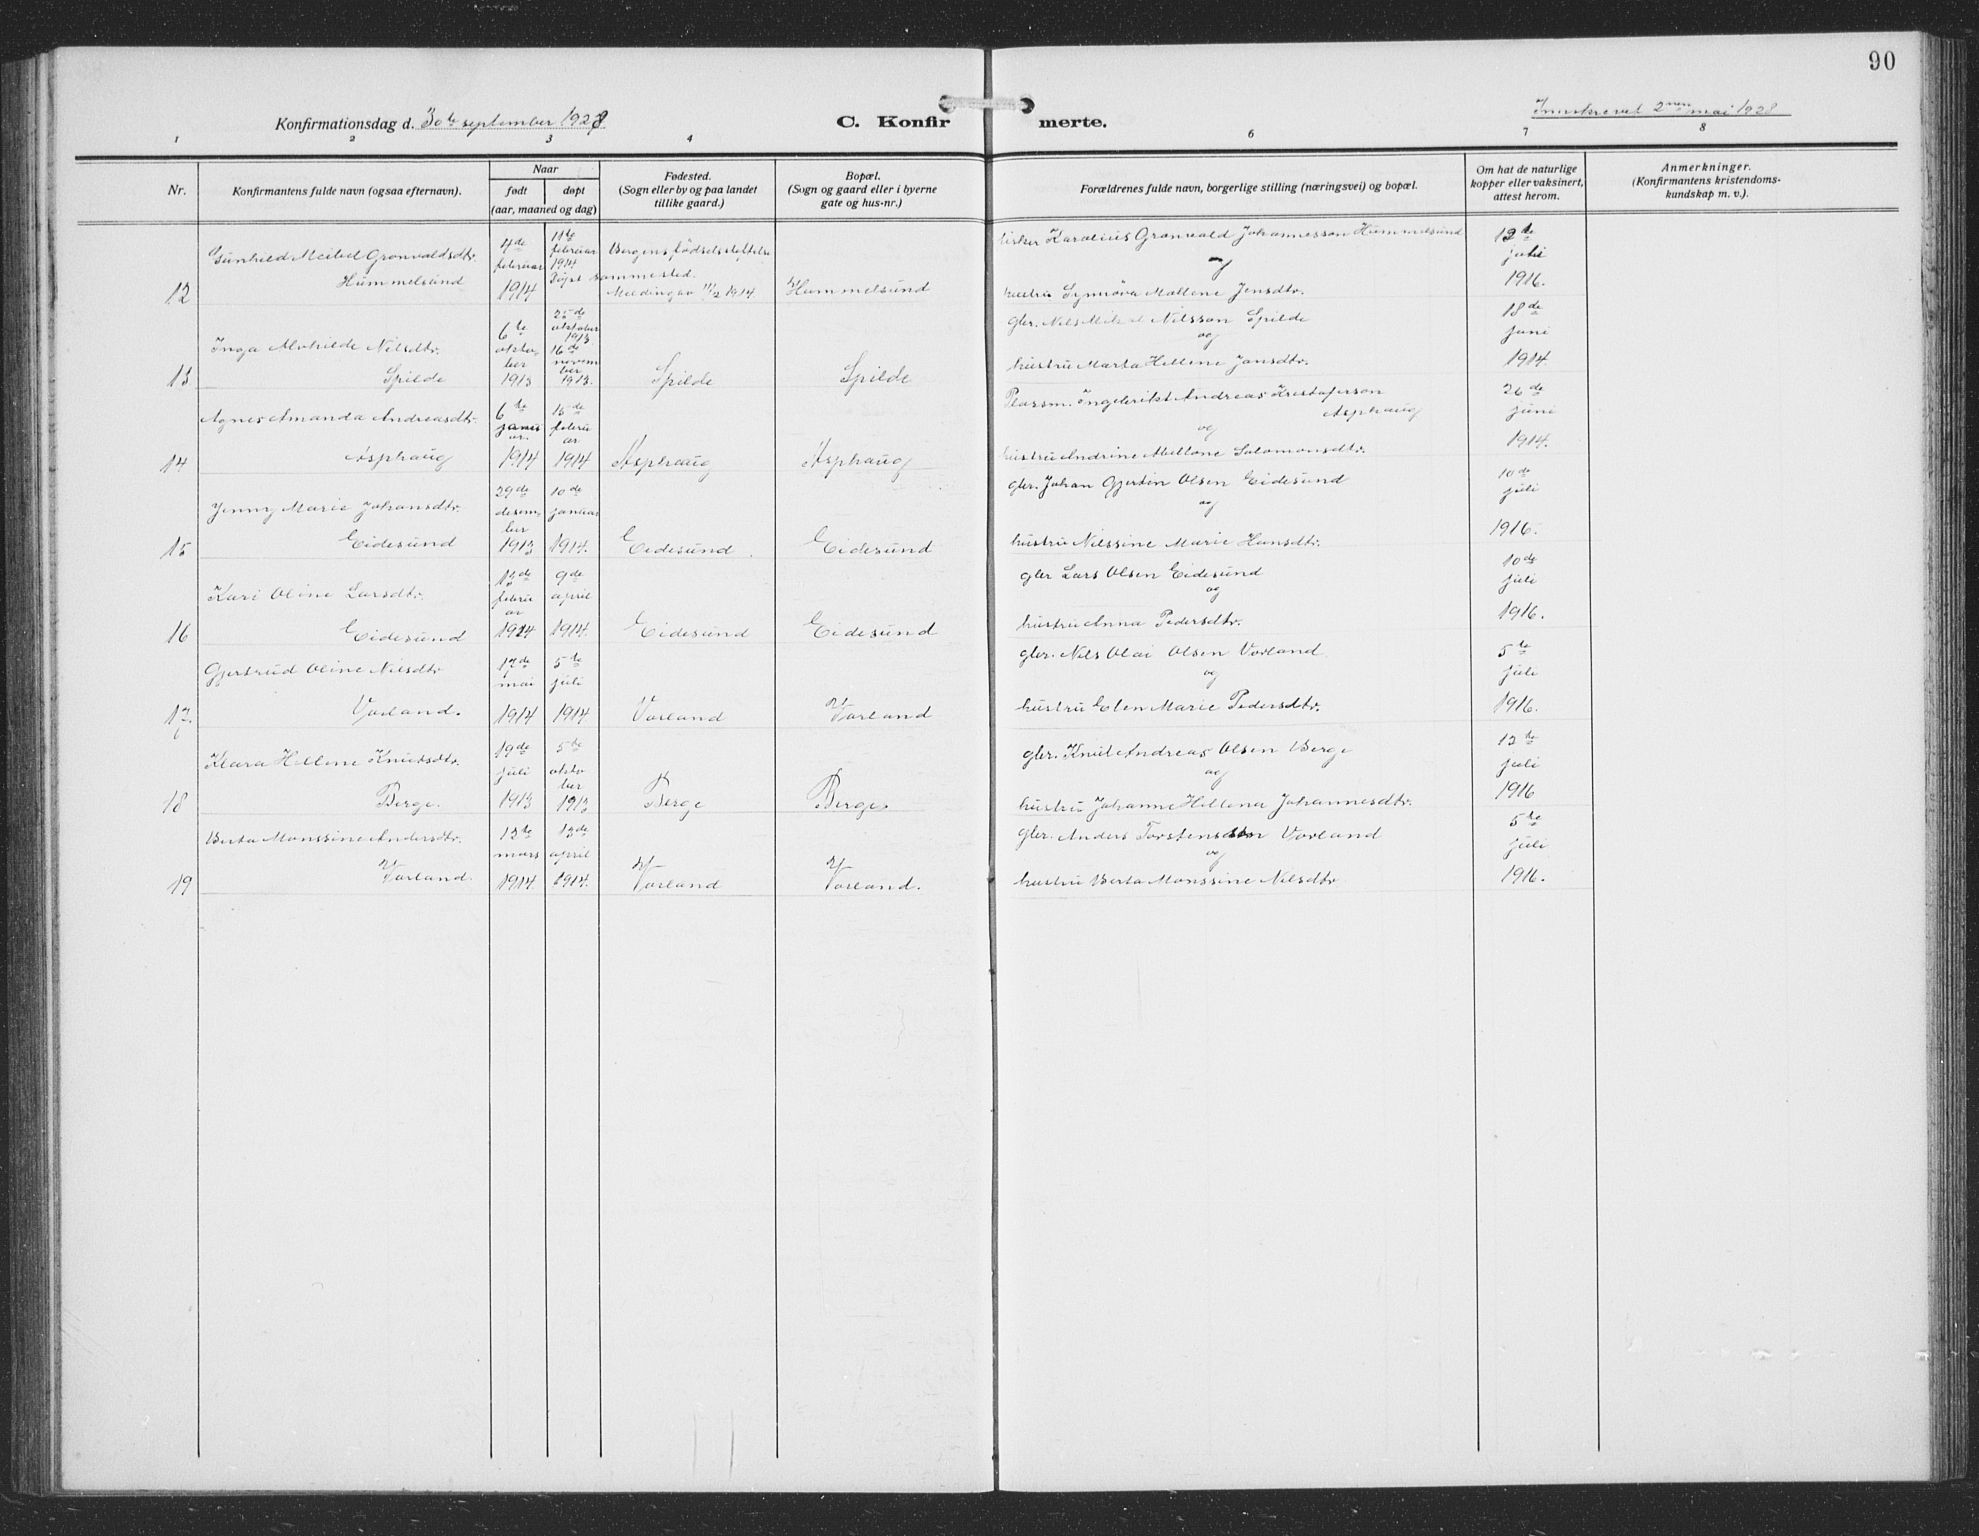 90
Konfirmationsdag d. 30te september 1928
C. Konfirmerte.
Innskrevet 2nen mai 1928
1 2 3 4 6 7 8
Nr.
Konfirmantens fulde navn (ogsaa efternavn).
Naar
født
døpt
(aar, maaned og dag)
Fødested.
(Sogn eller by og paa landet
tillike gaard.)
Bopæl.
(Sogn og gaard eller i byerne
gate og hus-nr.)
Forældrenes fulde navn, borgerlige stilling (næringsvei) og bopæl.
Om hat de naturlige
kopper eller vaksinert,
attest herom.
Anmerkninger.
(Konfirmantens kristendoms-
kundskap m. v.).
12
Gunhild Meibel Gronvaldsdtr.
Hummelsund
4de
februar
1914
11te
februar
1914
Døpt sammested.
Bergens fødselsstiftelse
Melding av 11/2 1914.
Hummelsund
fisker Karolius Gronvald Johannesson Hummelsund
og
hustru Synnøva Maltene Jensdtr.
12te
juli
1916.
13
Inga Alvhilde Nilsdtr.
Spilde
6te
oktober
1913
25de
oktober
1913
16de
november
1913.
Spilde
Spilde
gbr. Nils Nilsson Spilde
og
hustru Marta Hellene Jansdtr.
18de
juni
1914.
14
Agnes Amanda Andreasdtr.
Asphaug
6te
januar
1914
15de
februar
1914
Asphaug
Asphaug
Plassm. Ingebrikt Andreas Kristoferson
Asphaug
og
hustru Andrine Mellone Salomonsdtr.
26de
juni
1914.
15
Jenny Marie Johansdtr.
Eidesund
29de
desember
1913
10de
januar
1914.
Eidesund
Eidesund
gbr. Johan Gjertin Olsen Eidesund
og
hustru Nilssine Marie Hansdtr.
10de
juli
1916.
16
Kari Oline Larsdtr.
Eidesund
12de
februar
1914
9de
april
1914.
Eidesund
Eidesund
gbr Lars Olsen Eidesund
og
hustru Anna Pedersdtr.
10de
juli
1916.
17.
Gjertrud Oline Nilsdtr
Vorland.
17de
mai
1914
5te
juli
1914
Vorland
Vorland
gbr. Nils Olai Olsen Vorland
og
hustru Elen Marie Pedersdtr.
5te
juli
1916.
18
Klara Hellene Knutsdtr.
Berge.
19de
juli
1913
5te
oktober
1913
Berge
Berge
gbr. Knut Andreas Olsen Berge
og
hustru Johanne Hellena Johannesdtr.
12te
juli
1916
19
Berta Monssine Andersdtr.
Vorland.
12te
mars
1914.
13de
april
1914.
Vorland
Vorland.
gbr. Anders Torstensson Vorland
og
hustru Berta Monssine Nilsdtr
5te
juli
1916.